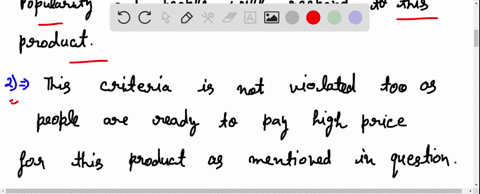 Popularity and people will respond to this
product.
2)⇒ This criteria is not violated too as
people are ready to pay high price
for this product as mentioned in question.